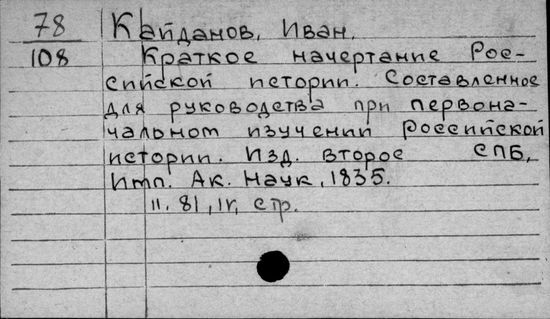 78
108
Кайданов, Иван.
Краткое начертание Рос-
сийской истории. Составленное
для руководства при первона-
чальном изучении Российской
истории. Изд. второе СПБ,
Имп. Ак. Наук, 1835.
II, 81, IV, стр.